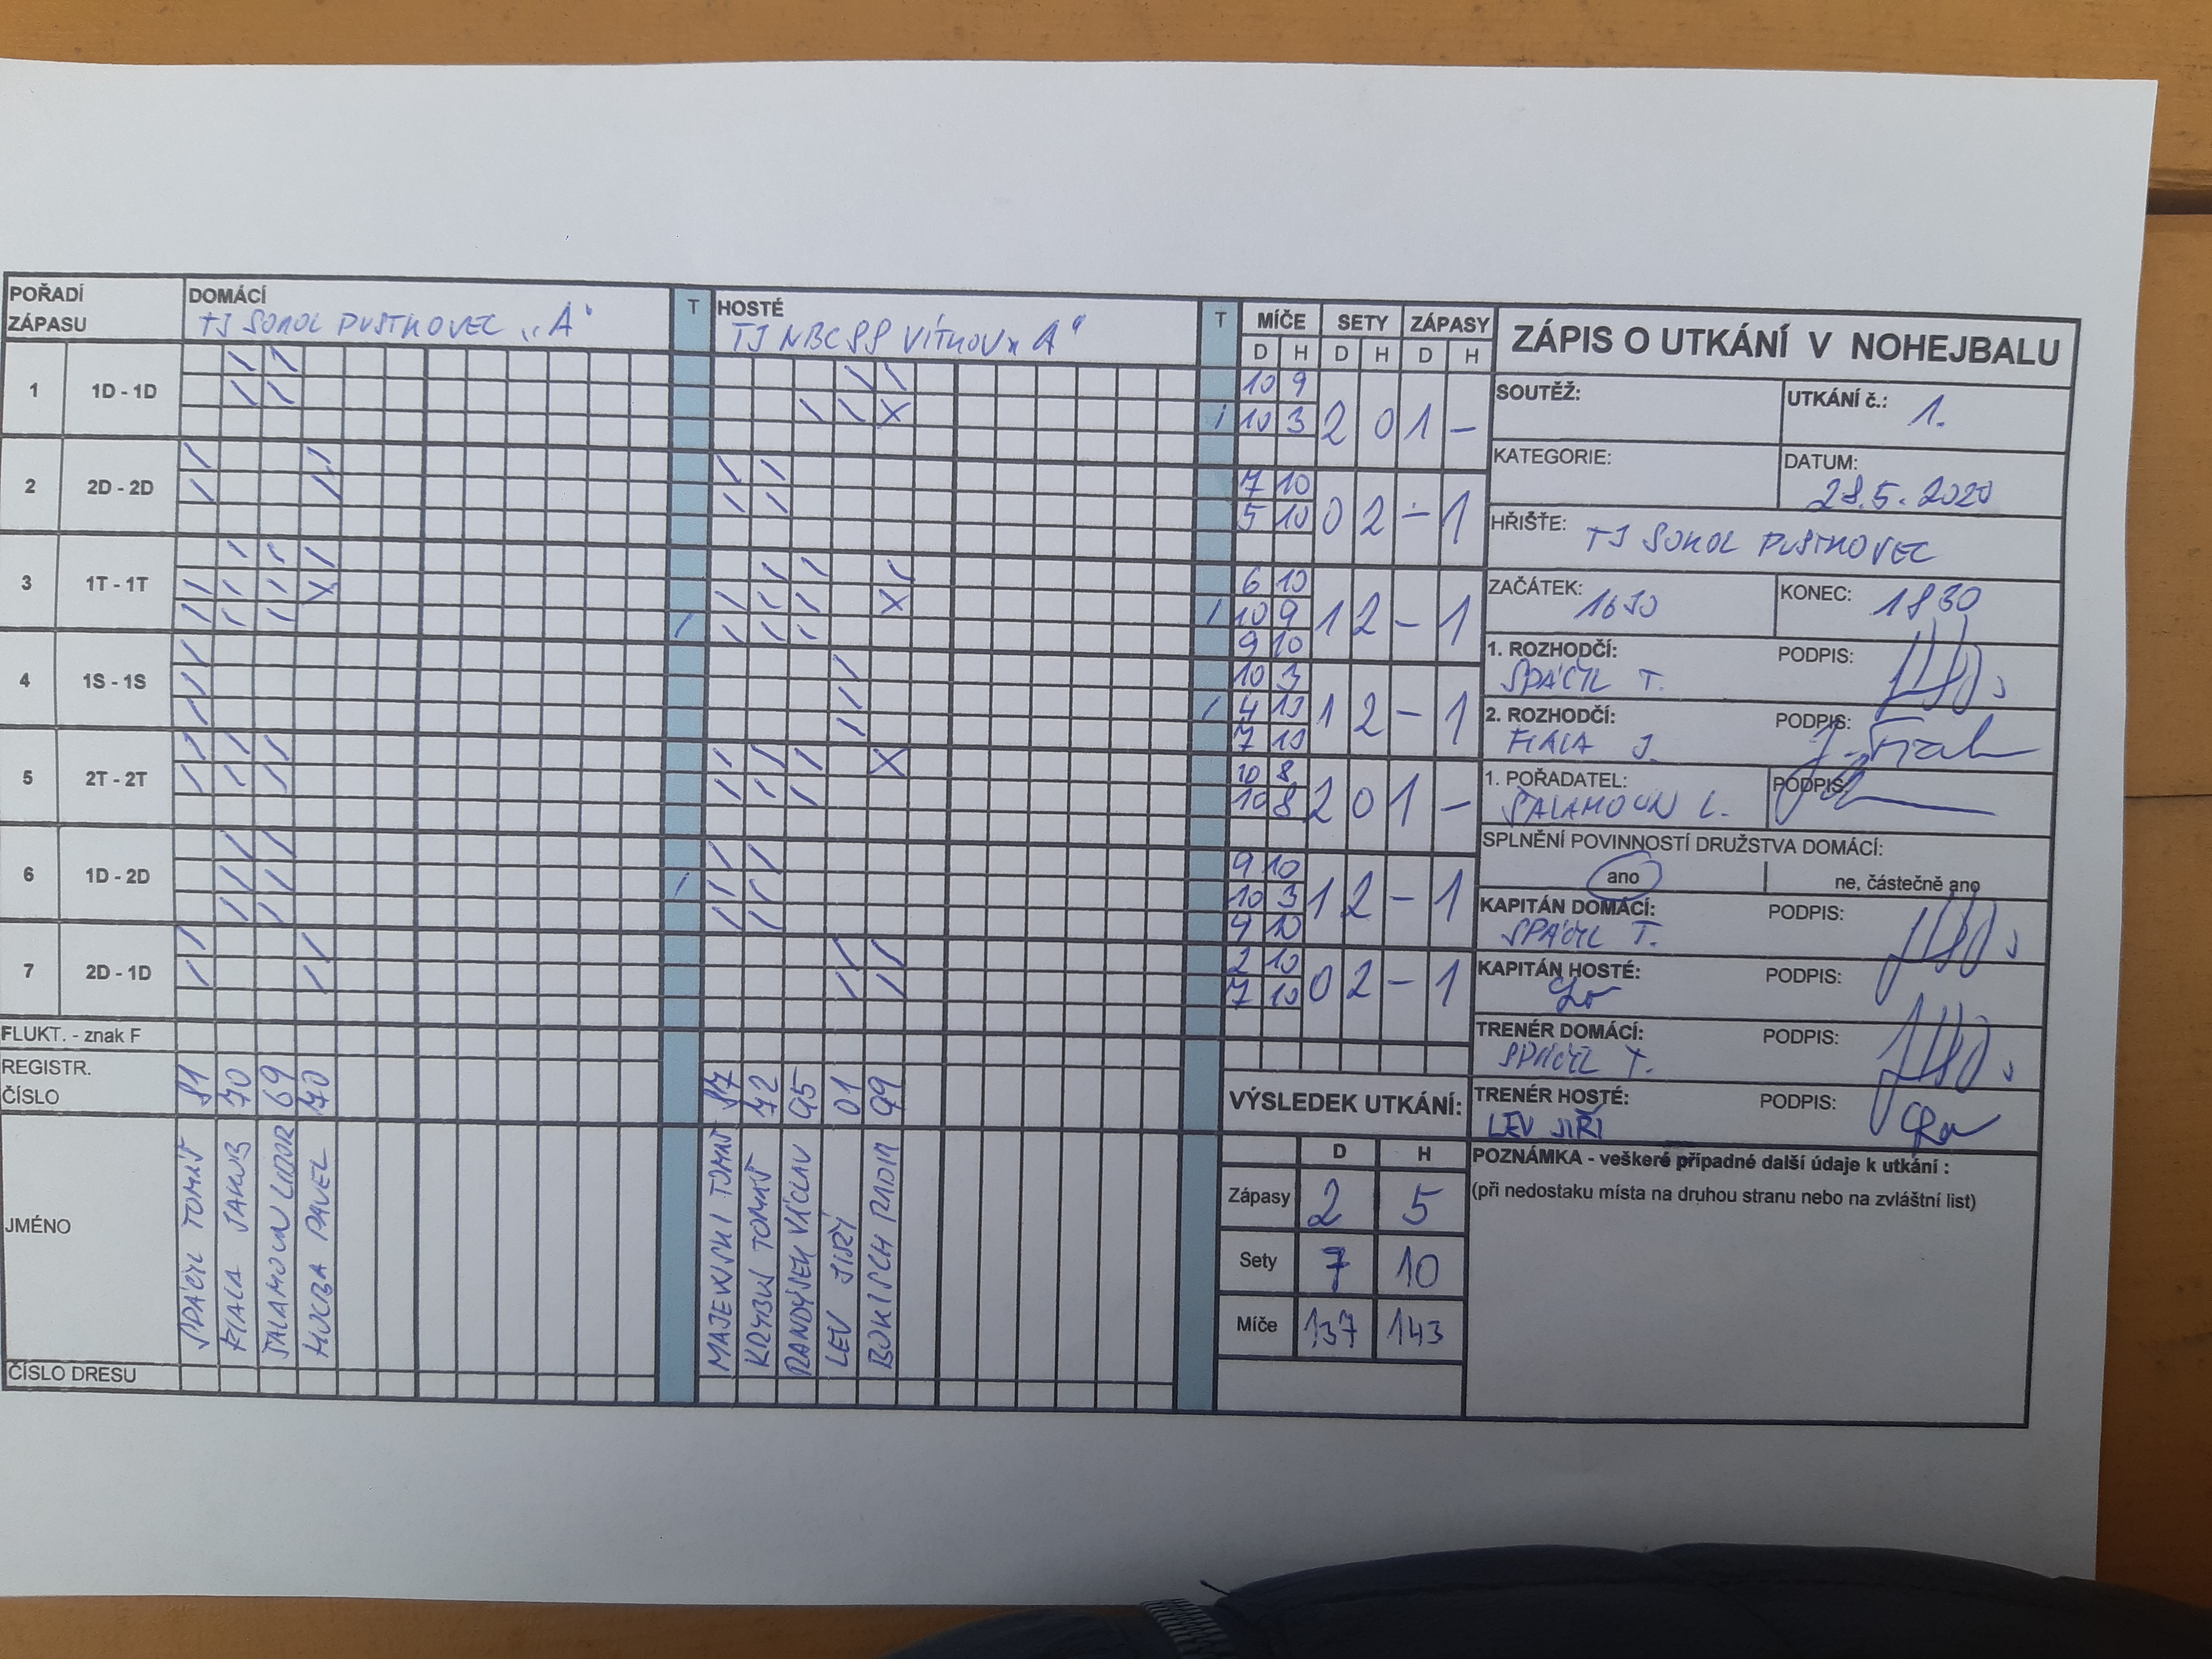 POŘADÍ ZÁPASU DOMÁCÍ T HOSTÉ T MÍČE SETY ZÁPASY
TJ SOKOL PUSTKOVEC „A“ TJ NBC 99 VÍTKOV „A“
D H D H D H
1 1D - 1D 10 9 2 0 1 -
10 3
2 2D - 2D 7 10 0 2 - 1
5 10
3 1T - 1T 6 10 1 2 - 1
10 9
9 10
4 1S - 1S 10 3 1 2 - 1
4 10
7 10
5 2T - 2T 10 8 2 0 1 -
10 8
6 1D - 2D 9 10 1 2 - 1
10 3
9 10
7 2D - 1D 2 10 0 2 - 1
7 10
FLUKT. - znak F
REGISTR. ČÍSLO 81 70 69 70 87 72 95 01 99
JMÉNO
SPÁČIL TOMÁŠ
FIALA JAKUB
ŠALAMOUN LIBOR
HUCZA PAVEL
MAJEWSKI TOMÁŠ
KRYBUS TOMÁŠ
RANDÝSEK VÁCLAV
LEV JIŘÍ
BOKISCH RADIM
ČÍSLO DRESU
VÝSLEDEK UTKÁNÍ:
D H
Zápasy 2 5
Sety 7 10
Míče 137 143
ZÁPIS O UTKÁNÍ V NOHEJBALU
SOUTĚŽ: UTKÁNÍ č.: 1.
KATEGORIE: DATUM: 28.5.2020
HŘIŠTĚ: TJ SOKOL PUSTKOVEC
ZAČÁTEK: 1630 KONEC: 1830
1. ROZHODČÍ: SPÁČIL T. PODPIS:
2. ROZHODČÍ: FIALA J. PODPIS: J. Fiala
1. POŘADATEL: ŠALAMOUN L. PODPIS:
SPLNĚNÍ POVINNOSTÍ DRUŽSTVA DOMÁCÍ:
ano ne, částečně ano
KAPITÁN DOMÁCÍ: SPÁČIL T. PODPIS:
KAPITÁN HOSTÉ: PODPIS:
TRENÉR DOMÁCÍ: SPÁČIL T. PODPIS:
TRENÉR HOSTÉ: LEV JIŘÍ PODPIS:
POZNÁMKA - veškeré případné další údaje k utkání :
(při nedostaku místa na druhou stranu nebo na zvláštní list)